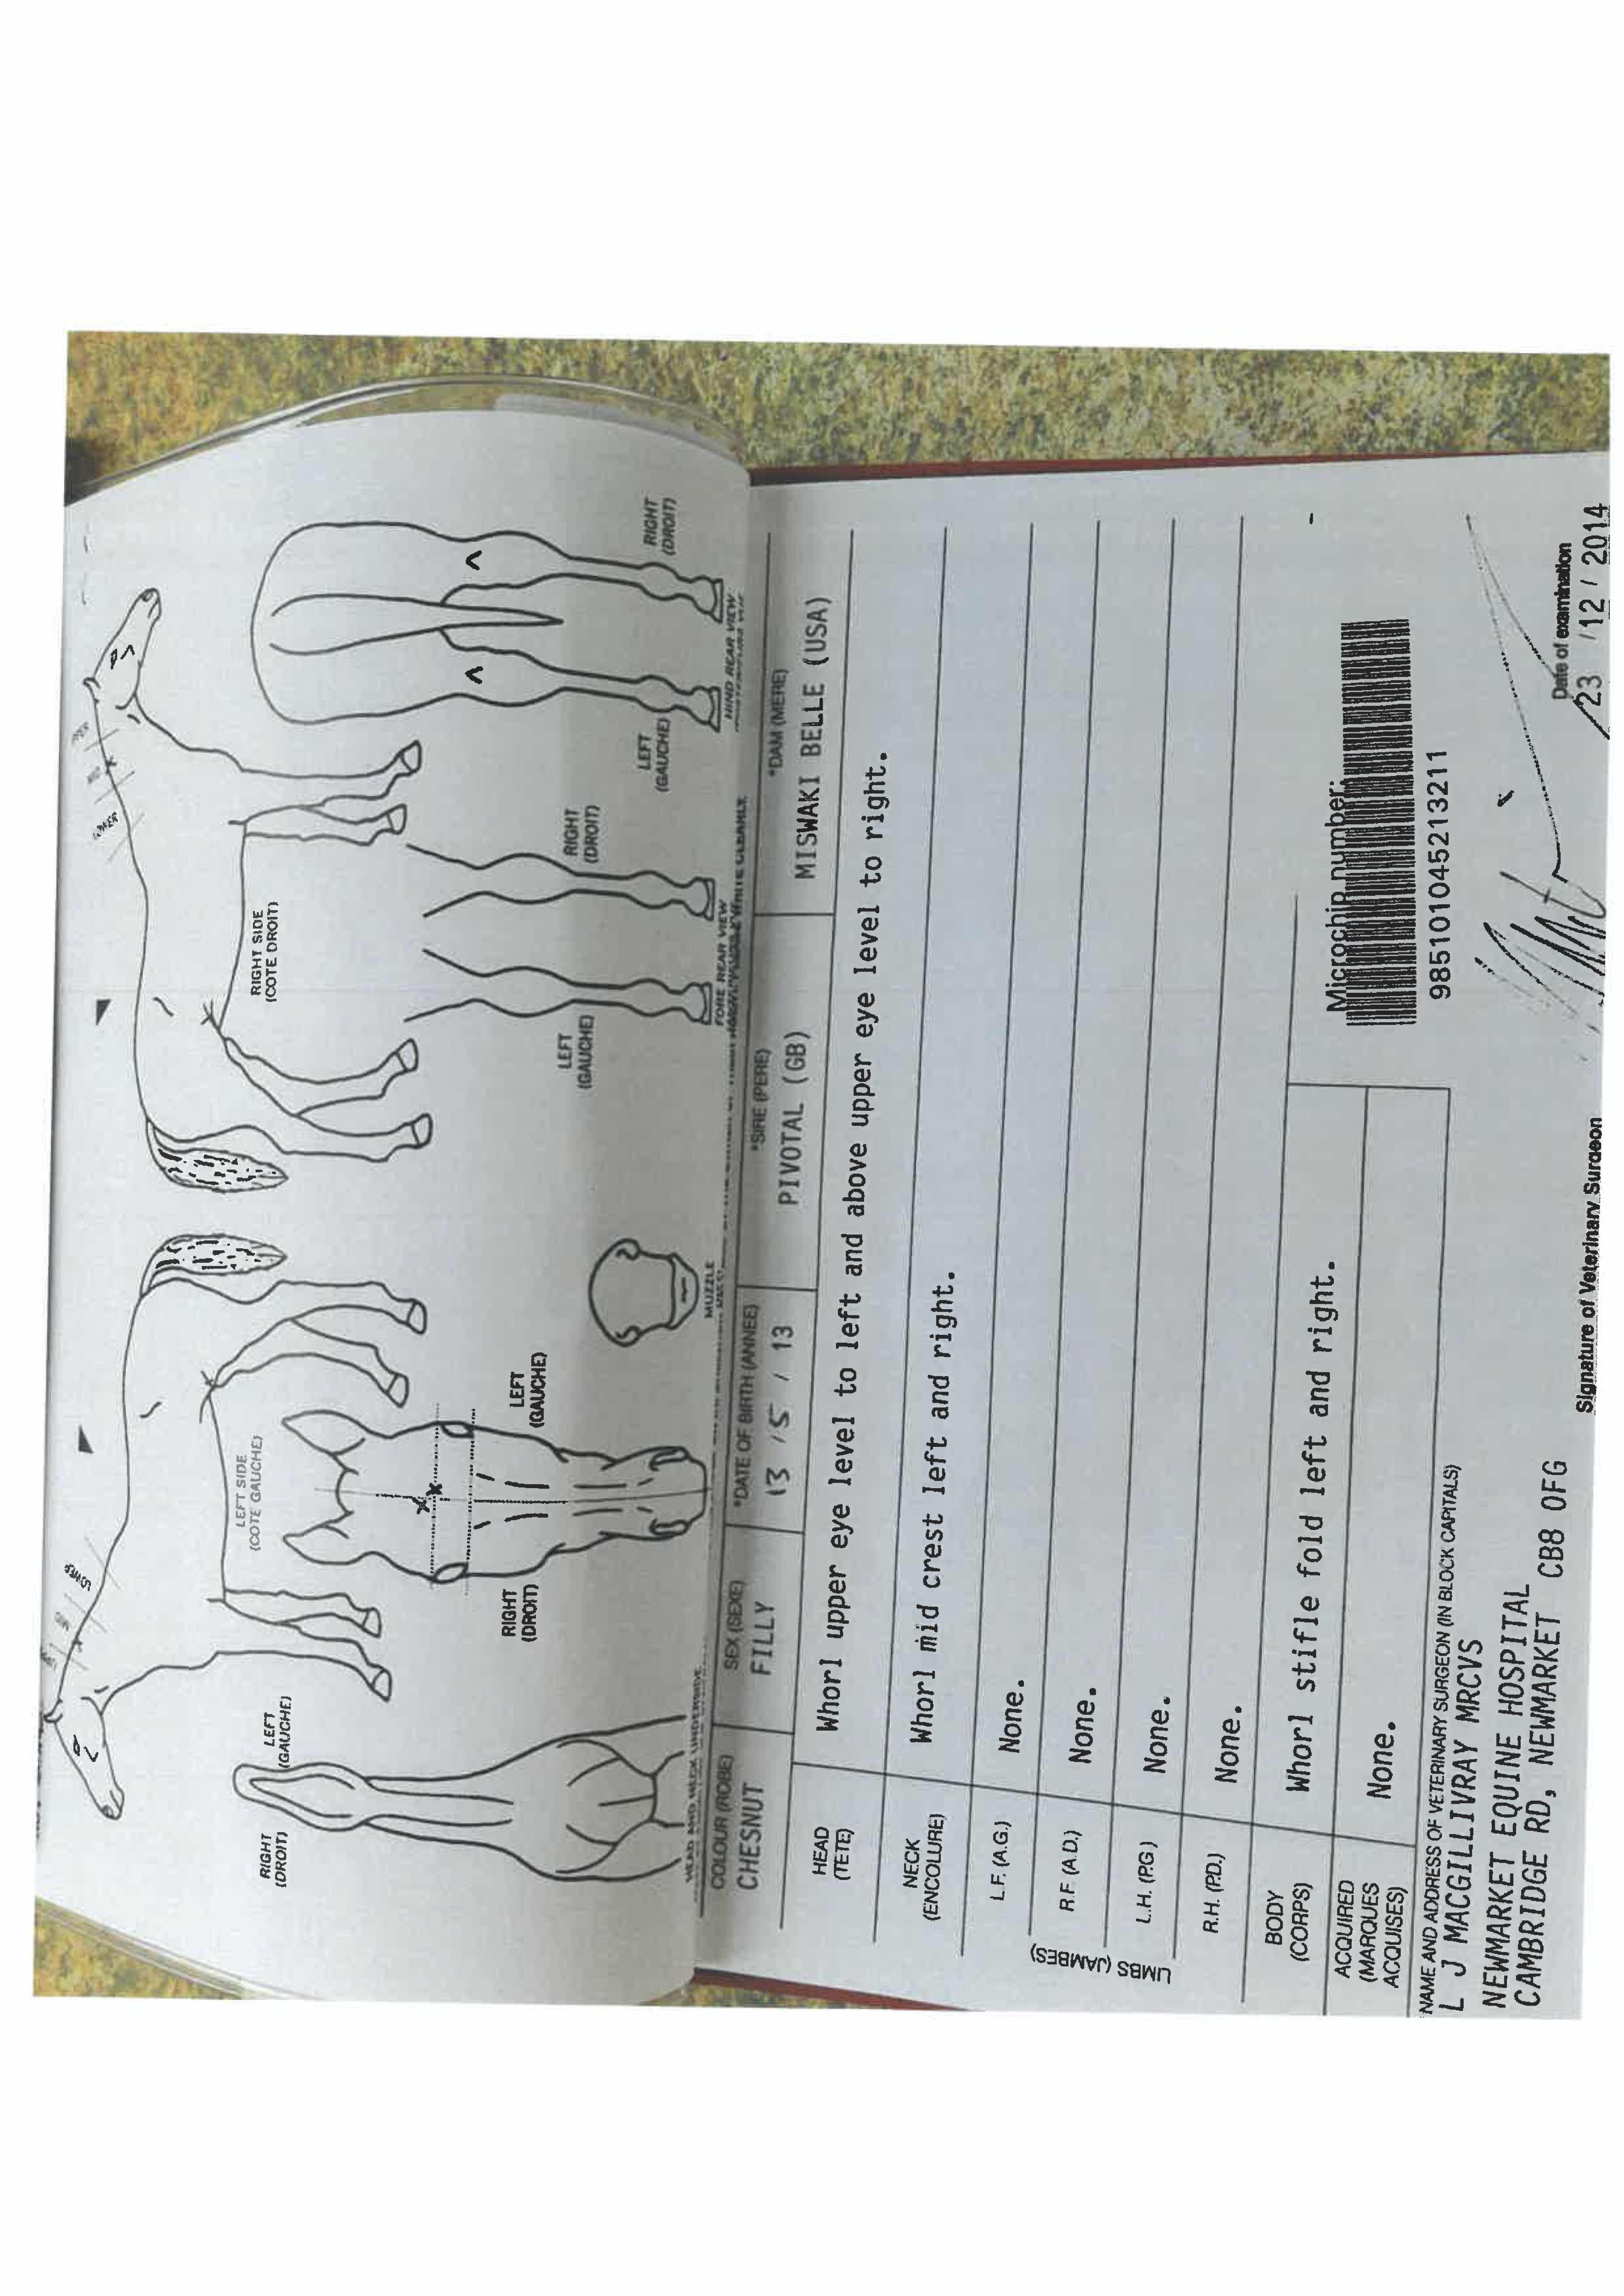 UPPER
MID
LOWER
LOWER
MID
LEFT SIDE
(COTE GAUCHE)
RIGHT SIDE
(COTE DROIT)
RIGHT
(DROIT)
LEFT
(GAUCHE)
RIGHT
(DROIT)
LEFT
(GAUCHE)
MUZZLE
LEFT
(GAUCHE)
RIGHT
(DROIT)
FORE REAR VIEW
LEFT
(GAUCHE)
RIGHT
(DROIT)
HIND REAR VIEW
COLOUR (ROBE)
CHESNUT
SEX (SEXE)
FILLY
*DATE OF BIRTH (ANNEE)
13 / 5 / 13
*SIRE (PERE)
PIVOTAL (GB)
*DAM (MERE)
MISWAKI BELLE (USA)
HEAD
(TETE)
Whorl upper eye level to left and above upper eye level to right.
NECK
(ENCOLURE)
Whorl mid crest left and right.
LIMBS (JAMBES)
L.F. (A.G.)
None.
R.F. (A.D.)
None.
L.H. (P.G.)
None.
R.H. (P.D.)
None.
BODY
(CORPS)
Whorl stifle fold left and right.
ACQUIRED
(MARQUES
ACQUISES)
None.
Microchip number:
985101045213211
NAME AND ADDRESS OF VETERINARY SURGEON (IN BLOCK CAPITALS)
L J MACGILLIVRAY MRCVS
NEWMARKET EQUINE HOSPITAL
CAMBRIDGE RD, NEWMARKET CB8 0FG
Signature of Veterinary Surgeon
Date of examination
23 / 12 / 2014